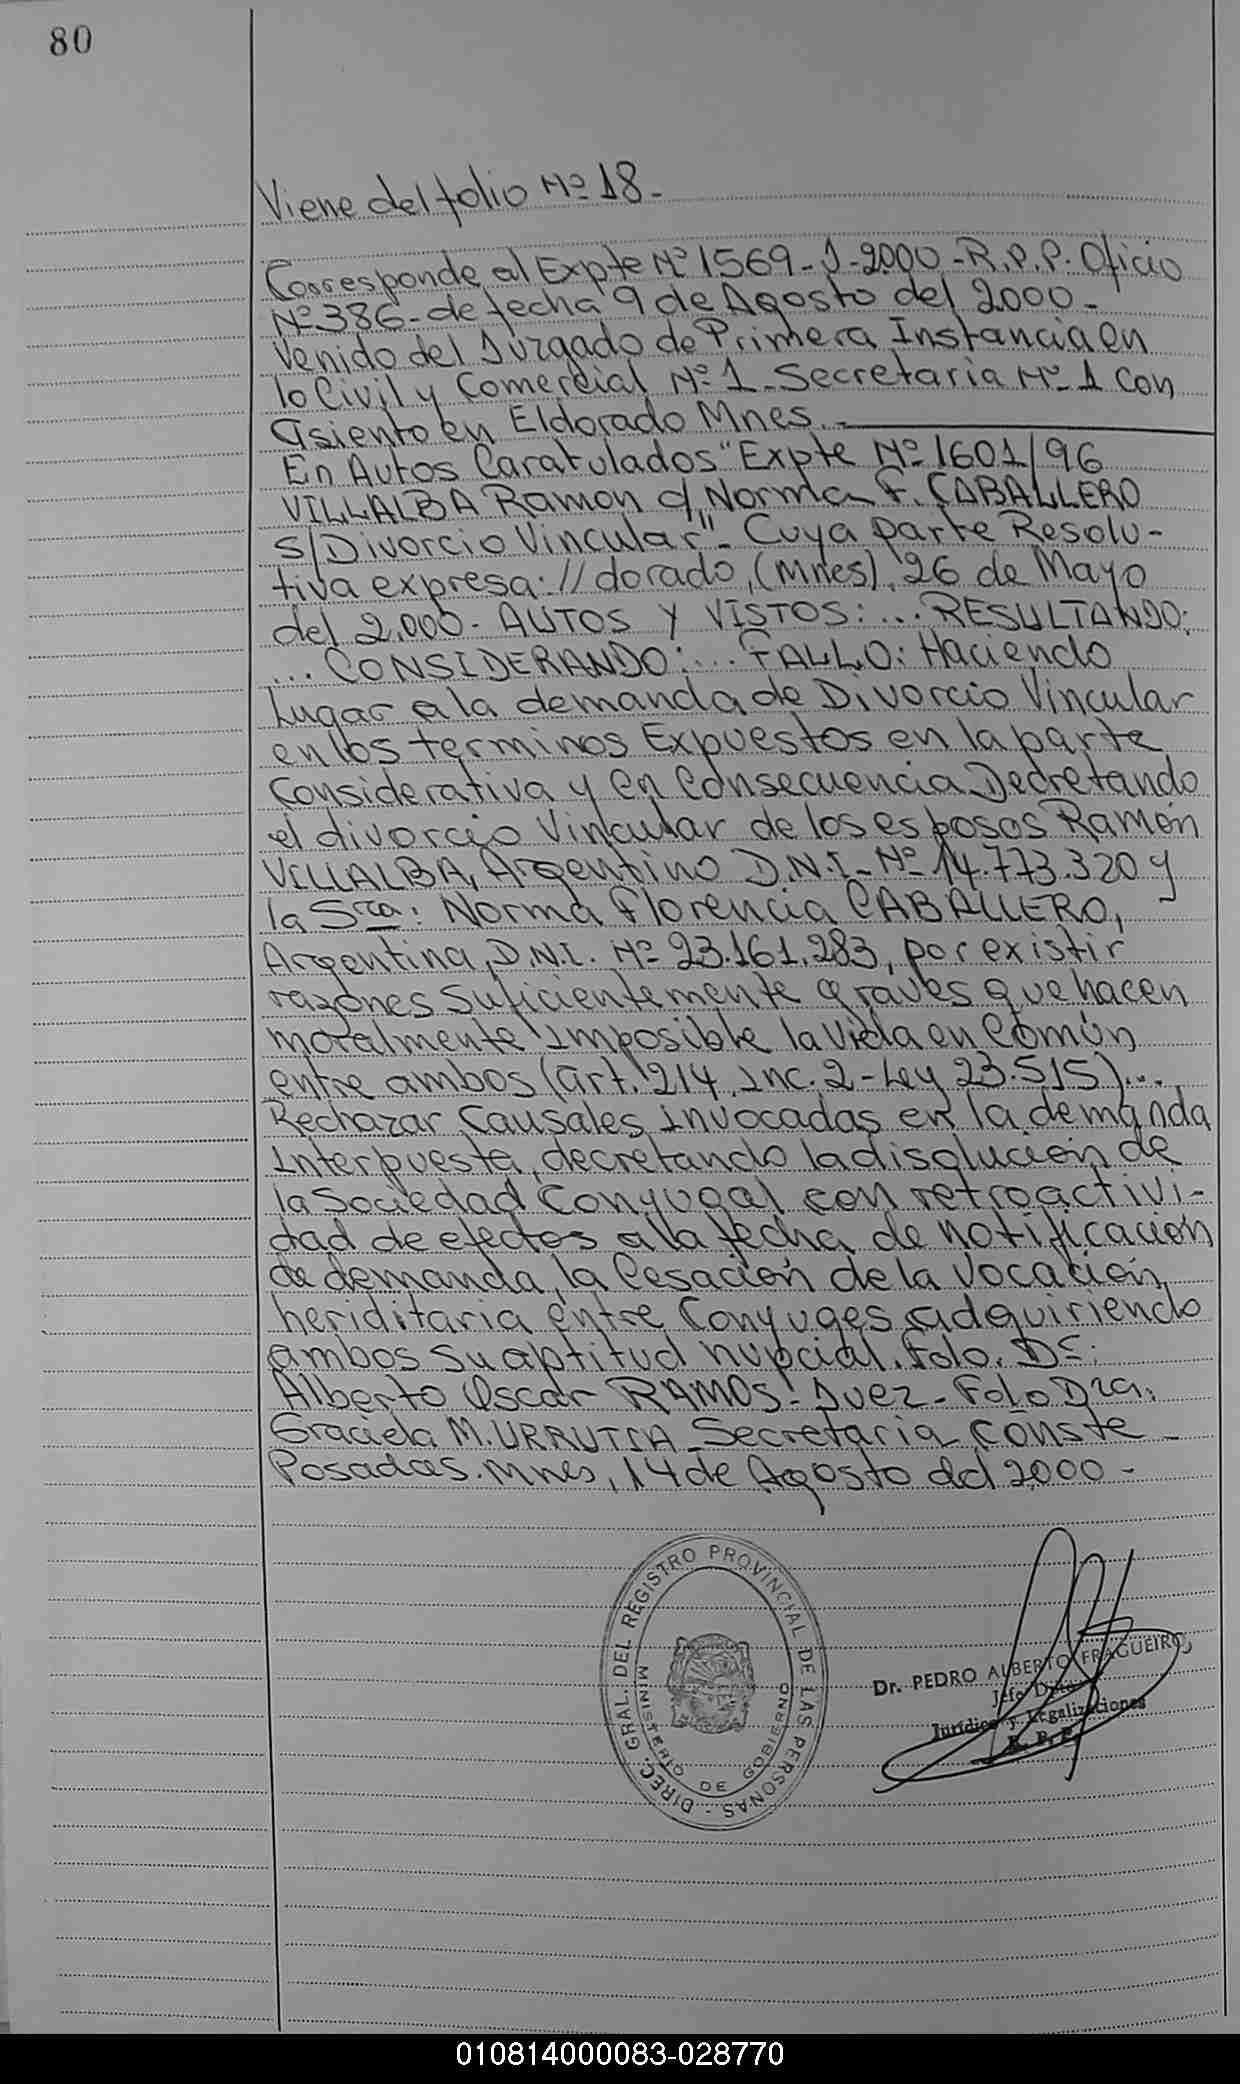 80
Viene del folio Nº 18-
Corresponde al Expte Nº 1569-J-2000-R.P.P. Oficio
Nº 386-de fecha 9 de Agosto del 2000-
Venido del Juzgado de Primera Instancia en
lo Civil y Comercial Nº 1-Secretaria Nº 1 con
asiento en Eldorado Mnes.-
En Autos Caratulados "Expte Nº 1601/96
VILLALBA Ramon c/ Norma F. CABALLERO
S/Divorcio Vincular"- Cuya parte Resolu-
tiva expresa: //dorado, (Mnes), 26 de Mayo
del 2.000- AUTOS Y VISTOS:... RESULTANDO:
... CONSIDERANDO:... FALLO: Haciendo
Lugar a la demanda de Divorcio Vincular
en los terminos Expuestos en la parte
Considerativa y en Consecuencia Decretando
el divorcio Vincular de los esposos Ramón
VILLALBA, Argentino D.N.I-Nº 14.773.320 y
la Sra: Norma Florencia CABALLERO,
Argentina, D.N.I. Nº 23.161.283, por existir
razones suficientemente graves que hacen
moralmente imposible la vida en Común
entre ambos (art. 214, Inc. 2-Ley 23.515)...
Rechazar Causales invocadas en la demanda
Interpuesta, decretando la disolución de
la Sociedad Conyugal con retroactivi-
dad de efectos a la fecha de notificación
de demanda, la Cesación de la Vocación
heriditaria entre Conyuges adquiriendo
ambos su aptitud nupcial. Fdo. Dr.
Alberto Oscar RAMOS- Juez- Fdo Dra.
Graciela M. URRUTIA-Secretaria, conste-
Posadas. Mnes, 14 de Agosto del 2000-
DIREC. GRAL. DEL REGISTRO PROVINCIAL DE LAS PERSONAS -
MINISTERIO DE GOBIERNO
Dr. PEDRO ALBERTO FRAGUEIRO
Jefe Dpto.
Jurídico y Legalizaciones
R. P. P.
010814000083-028770